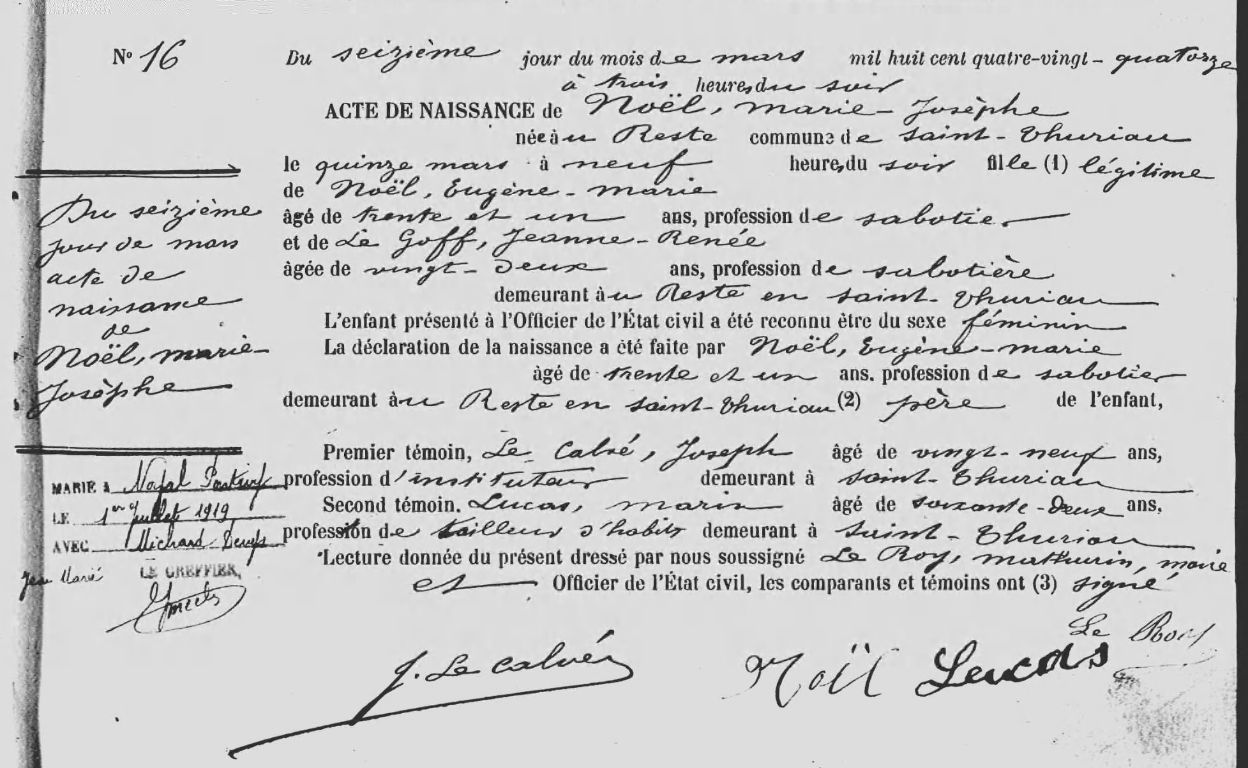 N° 16
Du seizième jour du mois de mars mil huit cent quatre-vingt-quatorze
à trois heures du soir
ACTE DE NAISSANCE de Noël, marie-Josèphe
née au Reste commune de saint-Thuriau
le quinze mars à neuf heures du soir fille (1) légitime
de Noël, Eugène-marie
âgé de trente et un ans, profession de sabotier
et de Le Goff, Jeanne-Renée
âgée de vingt-deux ans, profession de sabotière
demeurant au Reste en saint-Thuriau
L'enfant présenté à l'Officier de l'État civil a été reconnu être du sexe féminin
La déclaration de la naissance a été faite par Noël, Eugène-marie
âgé de trente et un ans, profession de sabotier
demeurant au Reste en saint-Thuriau (2) père de l'enfant,
Premier témoin, Le Calvé, Joseph âgé de vingt-neuf ans,
profession d'instituteur demeurant à saint-Thuriau
Second témoin, Lucas, marin âgé de soixante-deux ans,
profession de tailleur d'habits demeurant à saint-Thuriau
Lecture donnée du présent dressé par nous soussigné Le Roy, mathurin, marie
et Officier de l'État civil, les comparants et témoins ont (3) signé
Du seizième
jour de mars
acte de
naissance
de
Noël, marie-
Josèphe
MARIÉ à
LE 1er Juillet 1919
AVEC Michard
Jean Marie
LE GREFFIER,
J. Le Calvé
Noël
Lucas
Le Roy